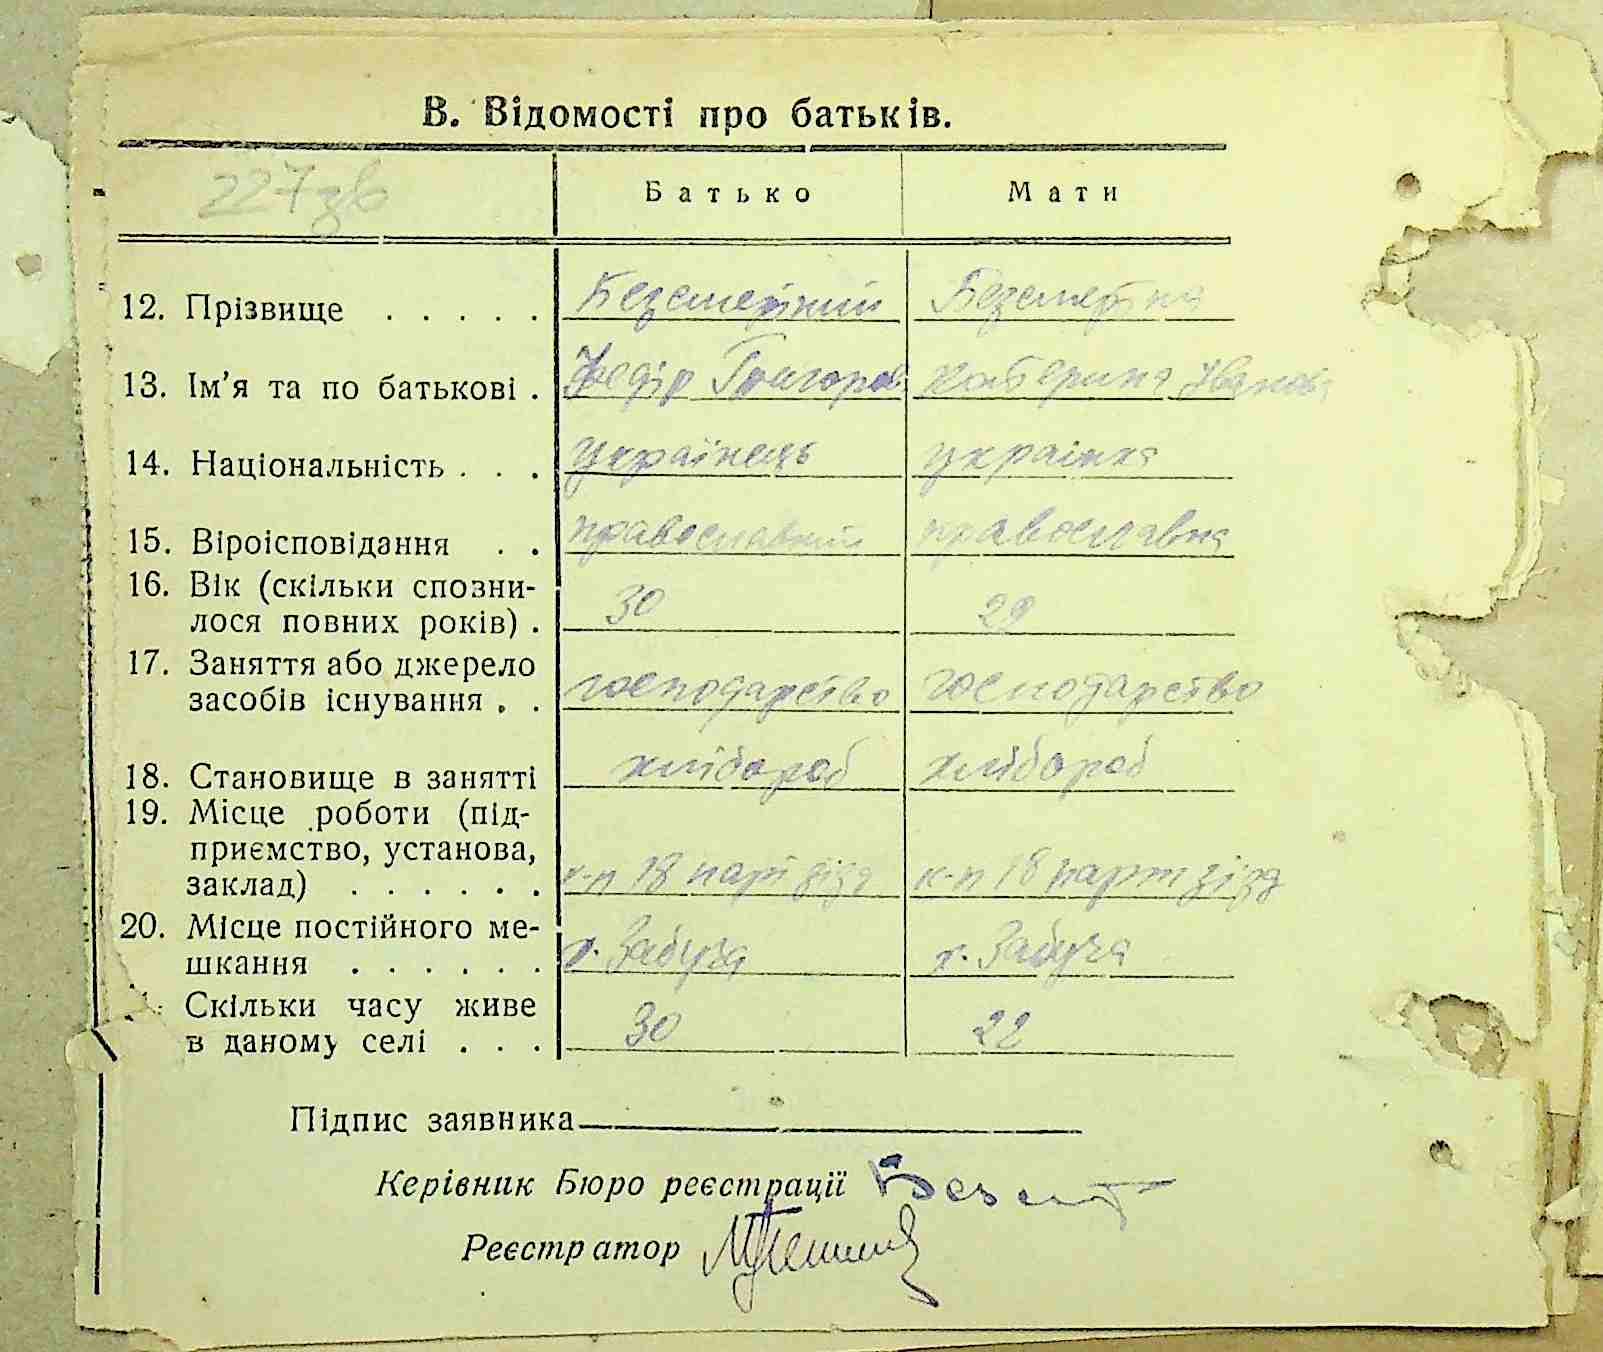 В. Відомості про батьків.
227зв
Батько Мати
12. Прізвище . . . . . Безсмертний Безсмертна
13. Ім’я та по батькові . Федір Григоров Катерина Іванов
14. Національність . . . українець українка
15. Віроісповідання . . православний православна
16. Вік (скільки спозни-
лося повних років) . 30 29
17. Заняття або джерело
засобів існування . . господарство господарство
18. Становище в занятті хлібороб хлібороб
19. Місце роботи (під-
приємство, установа,
заклад) . . . . . . к-п 18 парт зізд к-п 18 парт зізд
20. Місце постійного ме-
шкання . . . . . . х. Забуча х. Забуча
Скільки часу живе
в даному селі . . . 30 22
Підпис заявника
Керівник Бюро реєстрації Безсм
Реєстратор